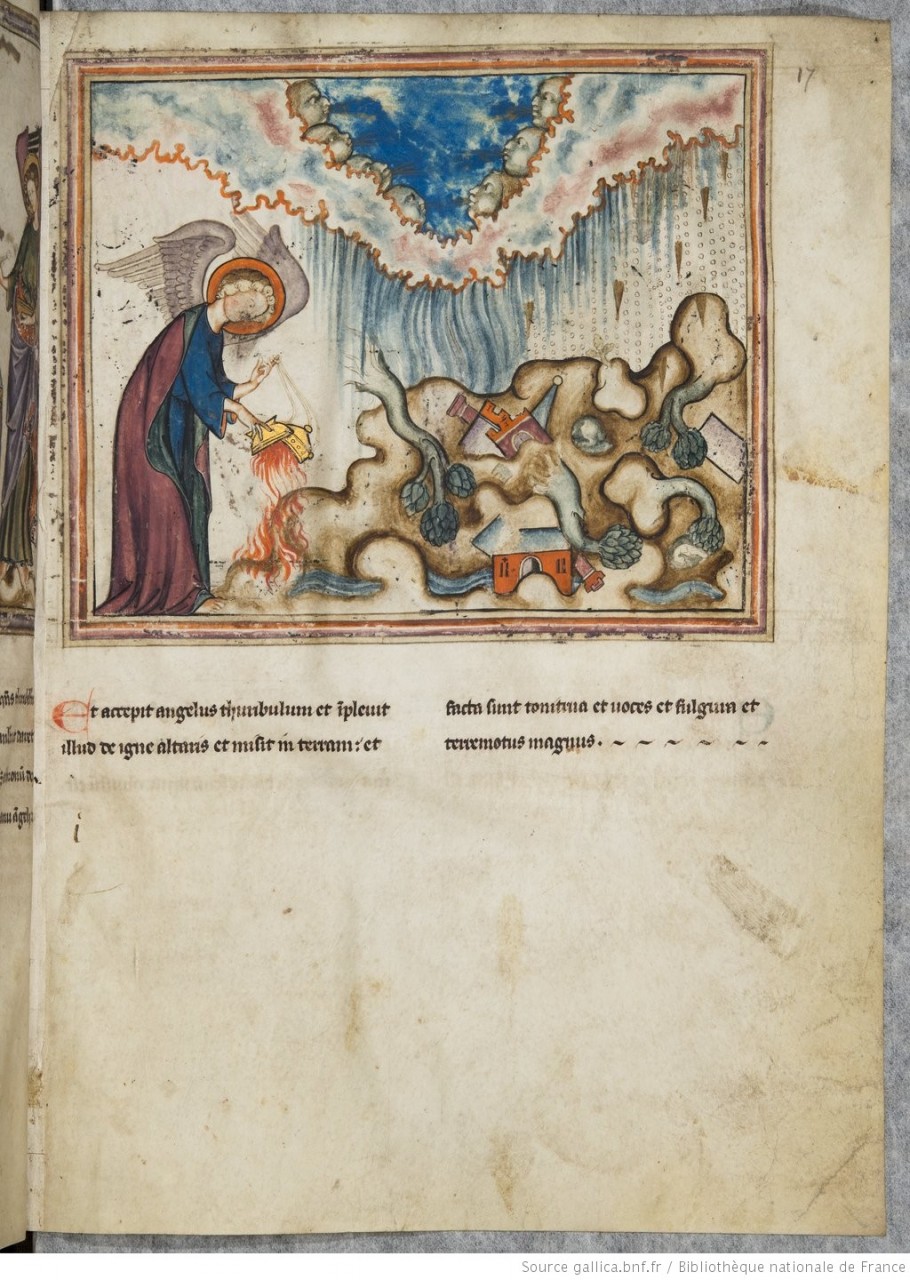 17
Et accepit angelus thuribulum et īpleuit
illud de igne altaris et misit in terram: et
facta sunt tonitrua et uoces et fulgura et
terremotus magnus.
i
Source gallica.bnf.fr / Bibliothèque nationale de France